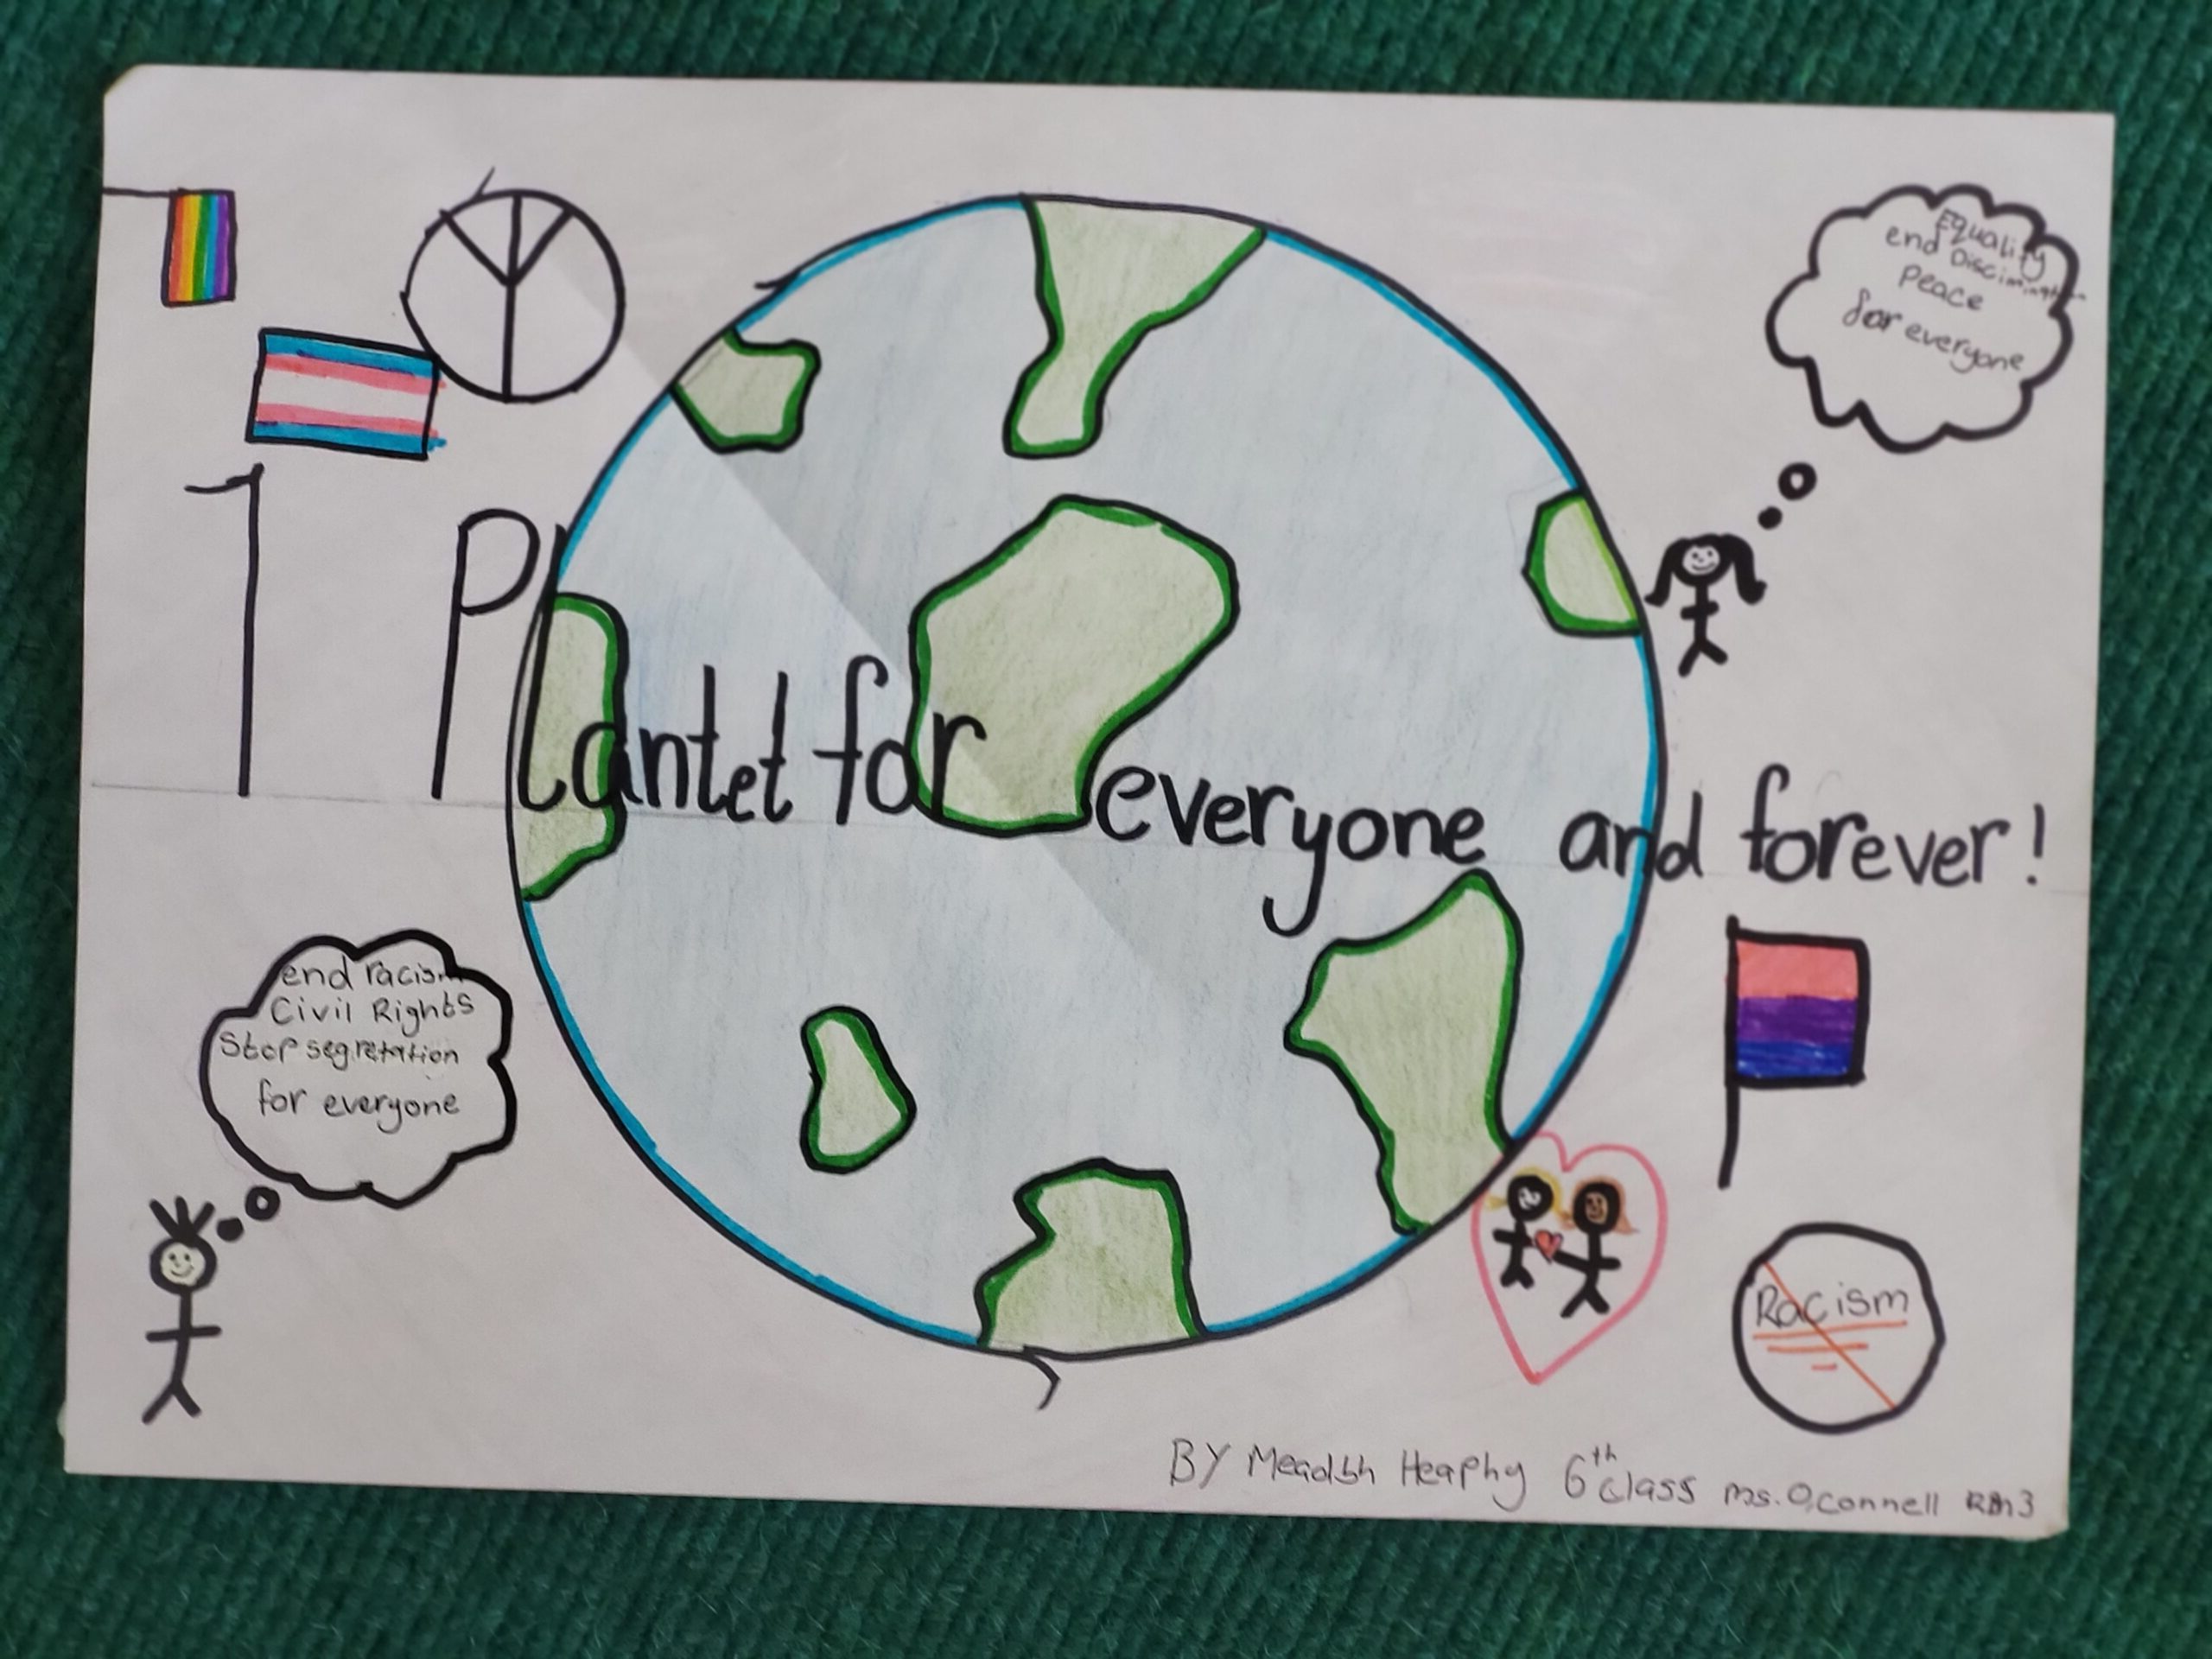 Equality
end Discimination
peace
for everyone
1 Plantet for everyone and forever!
end racism
Civil Rights
Stop segretation
for everyone
Racism
BY Meadbh Heaphy 6th class ms. O'connell Rm3